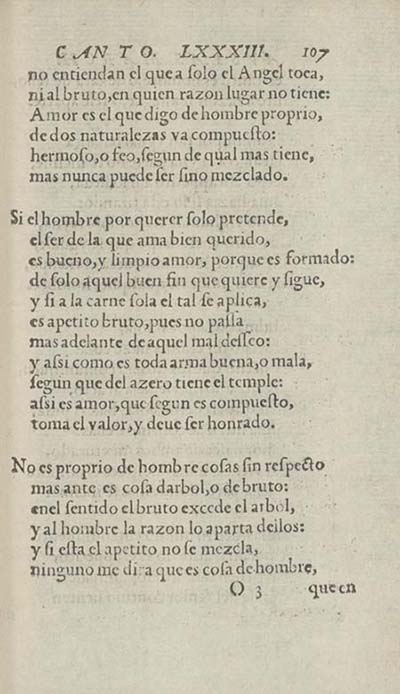 CANTO. LXXXIII. 107
no entiendan el que a ſolo el Angel toca,
ni al bruto, en quien razon lugar no tiene:
Amor es el que digo de hombre proprio,
de dos naturalezas va compueſto:
hermoſo, o feo, ſegun de qual mas tiene,
mas nunca puede ſer ſino mezclado.
Si el hombre por querer ſolo pretende,
el ſer de la que ama bien querido,
es bueno, y limpio amor, porque es formado:
de ſolo aquel buen fin que quiere y ſigue,
y ſi a la carne ſola el tal ſe aplica,
es apetito bruto, pues no paſſa
mas adelante de aquel mal deſſeo:
y aſsi como es toda arma buena, o mala,
ſegun que del azero tiene el temple:
aſsi es amor, que ſegun es compueſto,
toma el valor, y deue ſer honrado.
No es proprio de hombre coſas ſin reſpecto
mas ante es coſa darbol, o de bruto:
enel ſentido el bruto excede el arbol,
y al hombre la razon lo aparta dellos:
y ſi eſta el apetito no ſe mezcla,
ninguno me dira que es coſa de hombre,
O 3 que en